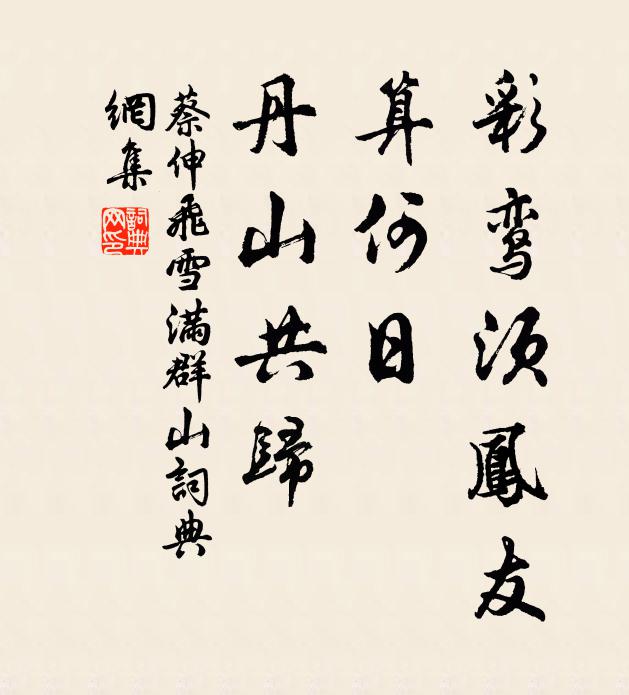 彩鸾须鳳友
算何日
丹山共歸
蔡伸飛雪滿群山詞典
網集
詞典
网印